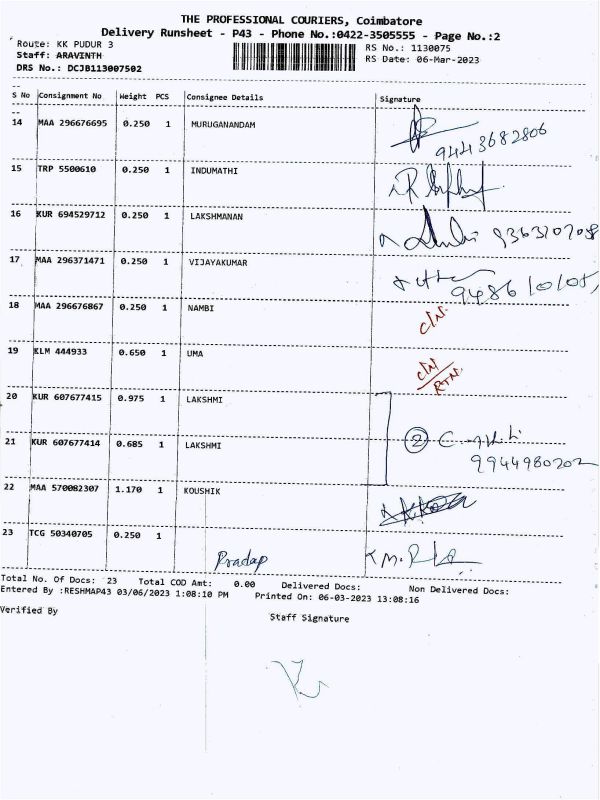 THE PROFESSIONAL COURIERS, Coimbatore
Delivery Runsheet - P43 - Phone No.:0422-3505555 - Page No.:2
Route: KK PUDUR 3 RS No.: 1130075
Staff: ARAVINTH RS Date: 06-Mar-2023
DRS No.: DCJB113007502
S No Consignment No Weight PCS Consignee Details Signature
14 MAA 296676695 0.250 1 MURUGANANDAM
9443682806
15 TRP 5500610 0.250 1 INDUMATHI
16 KUR 694529712 0.250 1 LAKSHMANAN
17 MAA 296371471 0.250 1 VIJAYAKUMAR
18 MAA 296676867 0.250 1 NAMBI C/N.
19 KLM 444933 0.650 1 UMA C/N
RTN.
20 KUR 607677415 0.975 1 LAKSHMI
21 KUR 607677414 0.685 1 LAKSHMI 2
9944980202
22 MAA 570082307 1.170 1 KOUSHIK
23 TCG 50340705 0.250 1
Pradap
Total No. Of Docs: 23 Total COD Amt: 0.00 Delivered Docs: Non Delivered Docs:
Entered By :RESHMAP43 03/06/2023 1:08:10 PM Printed On: 06-03-2023 13:08:16
Verified By Staff Signature